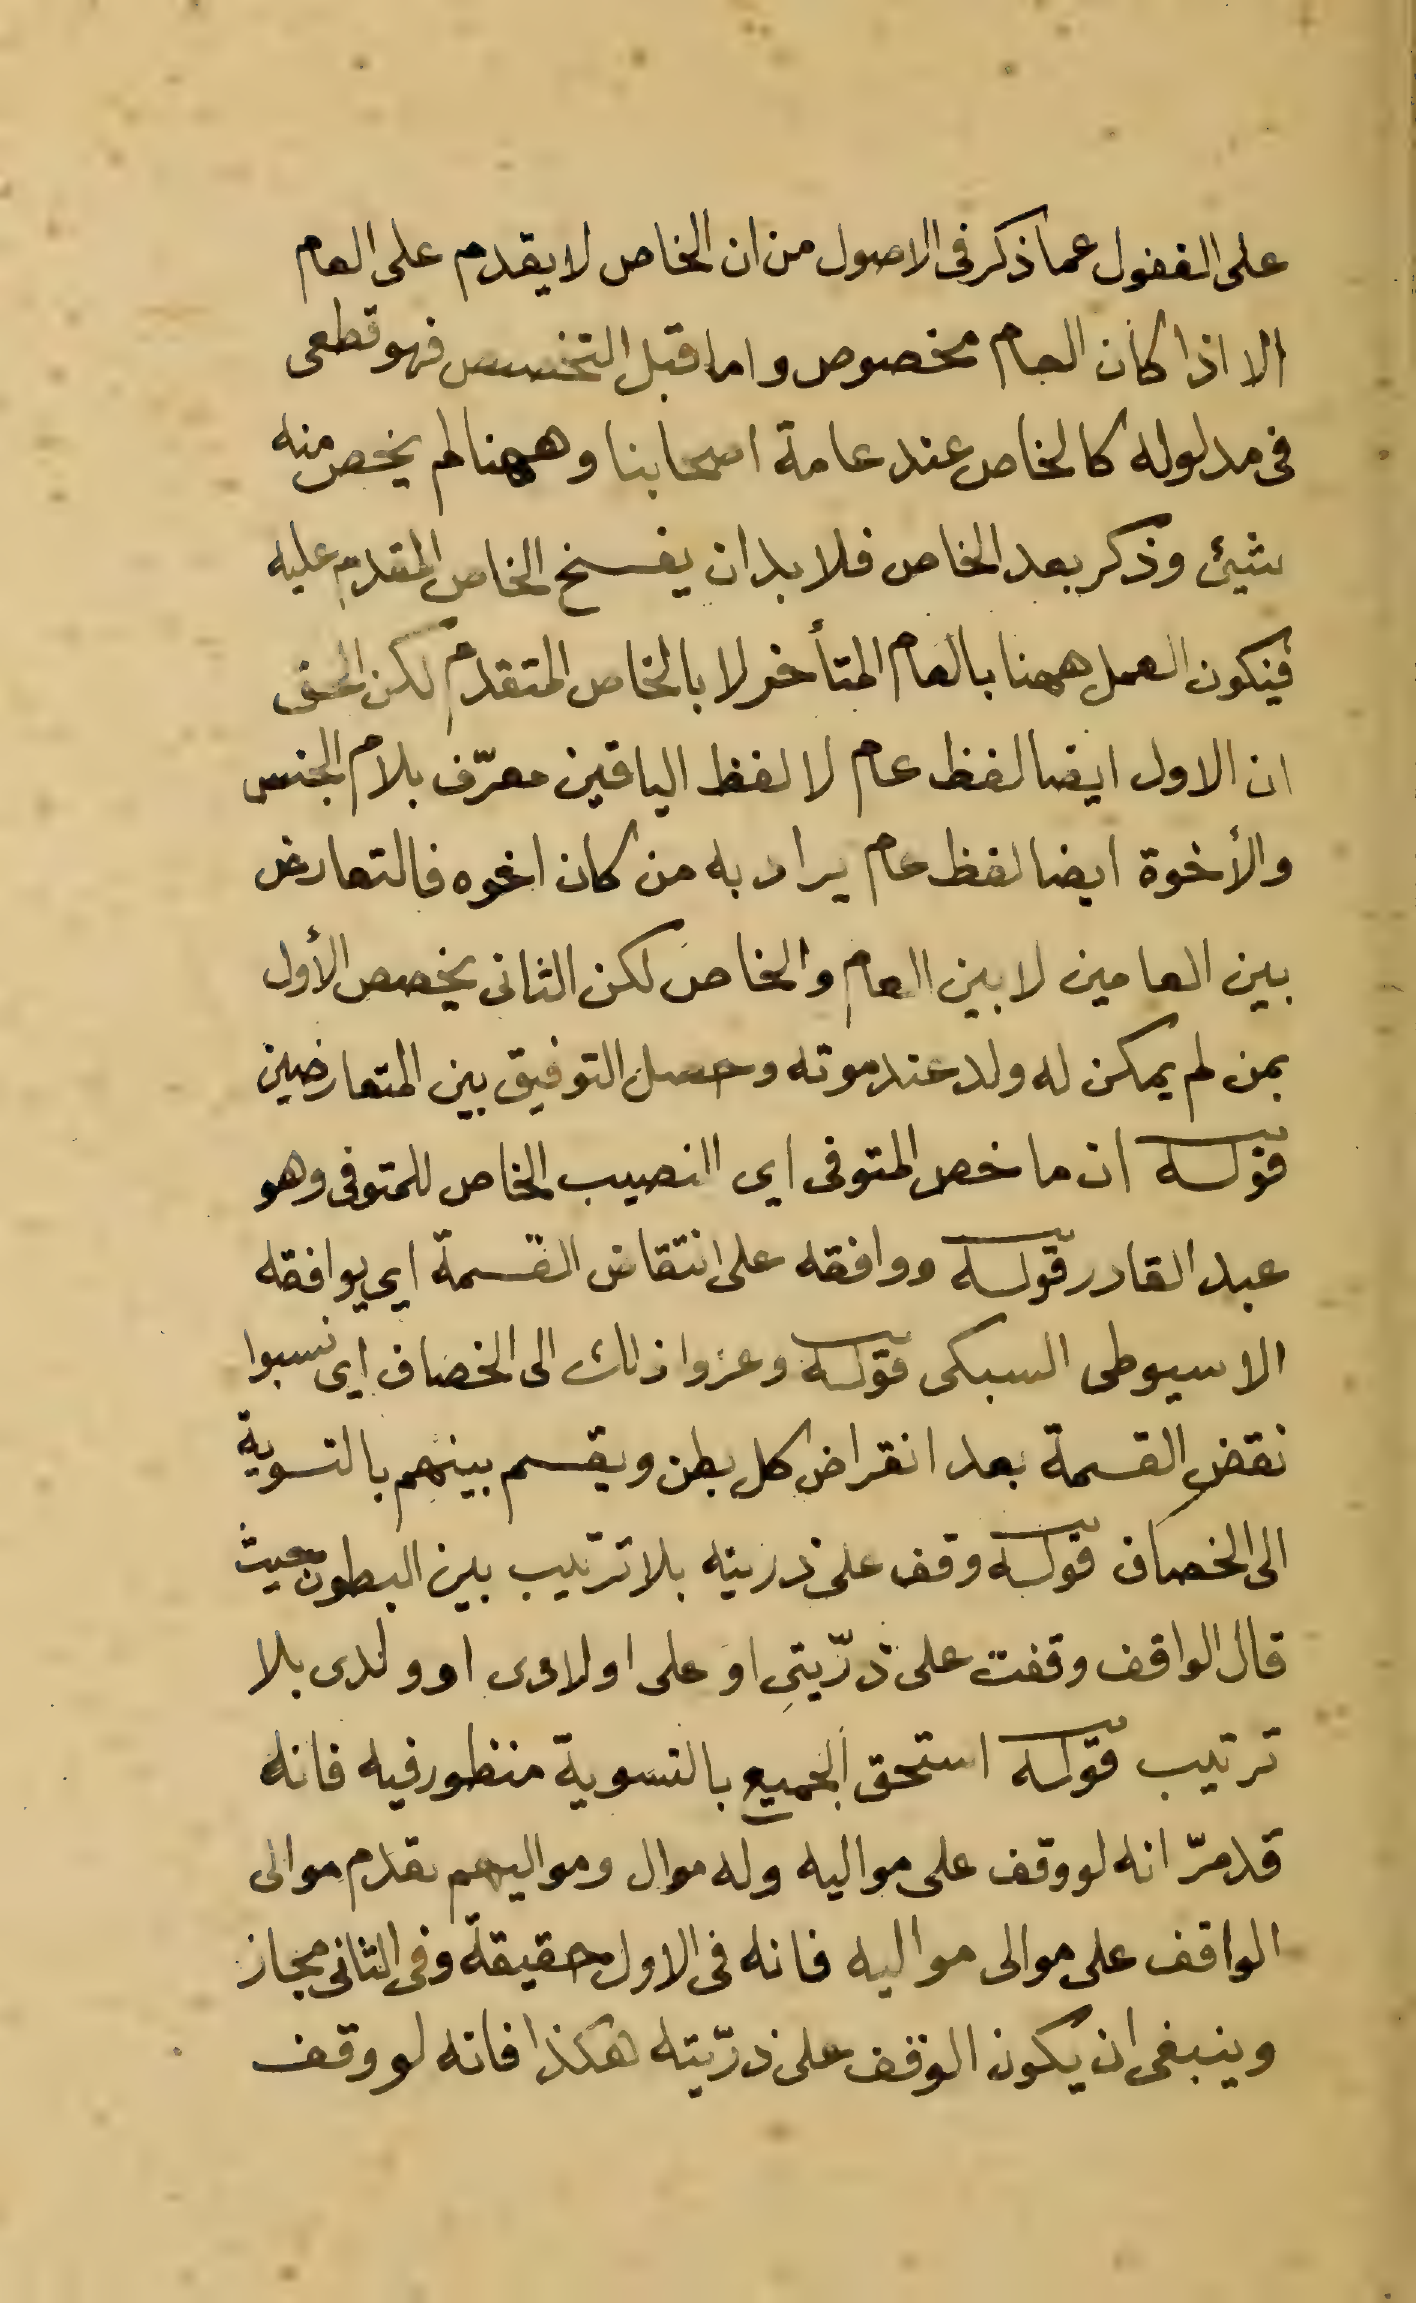 على الغفول عما ذكر فى الاصول من ان الخاص لا يقدم على العام
الا اذا كان العام مخصوص واما قبل التخصيص فهو قطعى
فى مدلوله كالخاص عند عامة اصحابنا وههنا لم يخص منه
شيئ وذكر بعد الخاص فلا بد ان يفسخ الخاص المتقدم عليه
فيكون العمل ههنا بالعام المتأخر لا بالخاص المتقدم لكن الحق
ان الاول ايضا لفظ عام لا لفظ الباقين معرّف بلام الجنس
والأخوة ايضا لفظ عام يراد به من كان اخوه فالتعارض
بين العامين لا بين العام والخاص لكن الثانى يخصص الأول
بمن لم يمكن له ولد عند موته وحصل التوفيق بين المتعارضين
قوله ان ما خص المتوفى اى النصيب الخاص للمتوفى وهو
عبد القادر قوله ووافقه على انتقاض القسمة اى يوافقه
الاسيوطى السبكى قوله وعزوا ذلك الى الخصاف اى نسبوا
نقض القسمة بعد انقراض كل بطن ويقسم بينهم بالتسوية
الى الخصاف قوله وقف على ذريته بلا ترتيب بين البطون حيث
قال الواقف وقفت على ذرّيتى او على اولادى او ولدى بلا
ترتيب قوله استحق الجميع بالتسوية منظور فيه فانه
قد مرّ انه لو وقف على مواليه وله موال ومواليهم يقدم موالى
الواقف على موالى مواليه فانه فى الاول حقيقة وفى الثانى مجاز
وينبغى ان يكون الوقف على ذرّيته هكذا فانه لو وقف